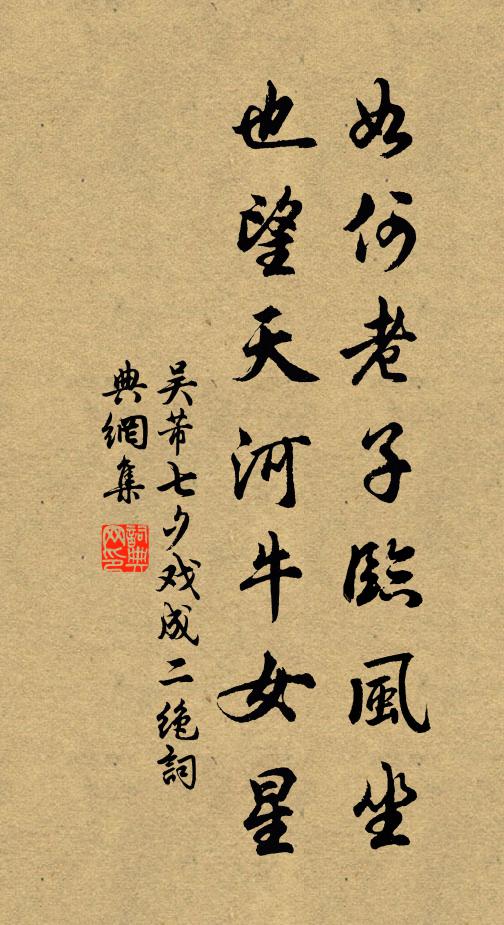 如何老子臨風坐
也望天河牛女星
吴芾七夕戏成二绝詞
典網集
詞典
网印